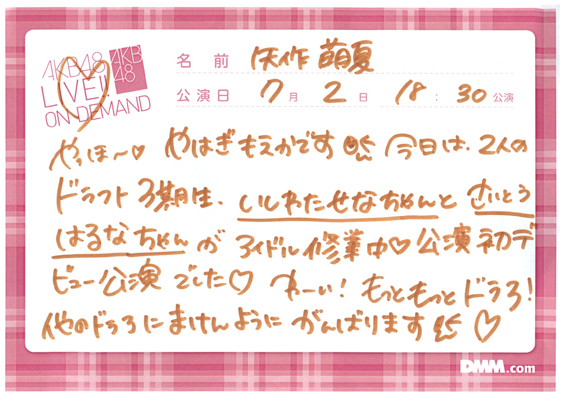 AKB48
LIVE!!
ON DEMAND
AKB
48
名前 矢作萌夏
公演日 7月2日 18:30公演
やっほ〜♡ やはぎもえかです 今日は、2人の
ドラフト3期生、いしわたせなちゃんとさいとう
はるなちゃんがアイドル修業中♡公演初デ
ビュー公演でした♡ わーい!もっともっとドラ3!
他のドラ3にまけんようにがんばります ♡
DMM.com